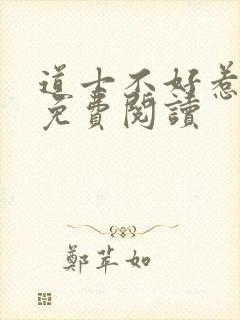 道士不好惹
免費閱讀
鄭苹如